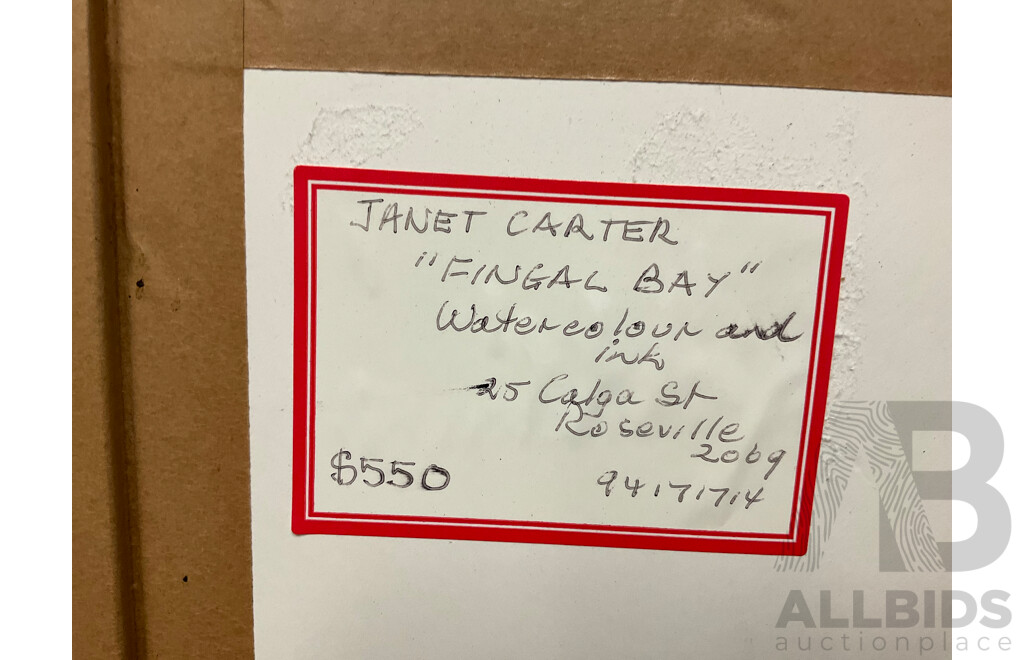 JANET CARTER
"FINGAL BAY"
Watercolour and
ink
25 Calga St
Roseville
2069
$550
94171714
AB
ALLBIDS
auctionplace